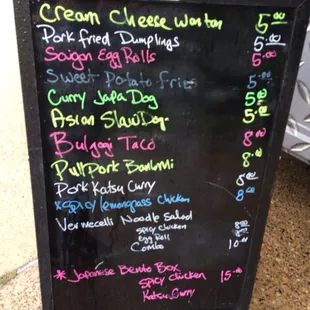 Cream Cheese Wonton 5.00
Pork Fried Dumplings 5.00
Saigon Egg Rolls 5.00
Sweet Potato Fries 5.00
Curry Japa Dog 5.00
Asian Slaw Dog 5.00
Bulgogi Taco 8.00
Pull Pork Banh Mi 8.00
Pork Katsu Curry 8.00
*Spicy Lemongrass Chicken 8.00
Vermecelli Noodle Salad
Spicy Chicken 8.00
Egg Roll 8.00
Combo 10.00
* Japanese Bento Box
Spicy Chicken 15.00
Katsu Curry